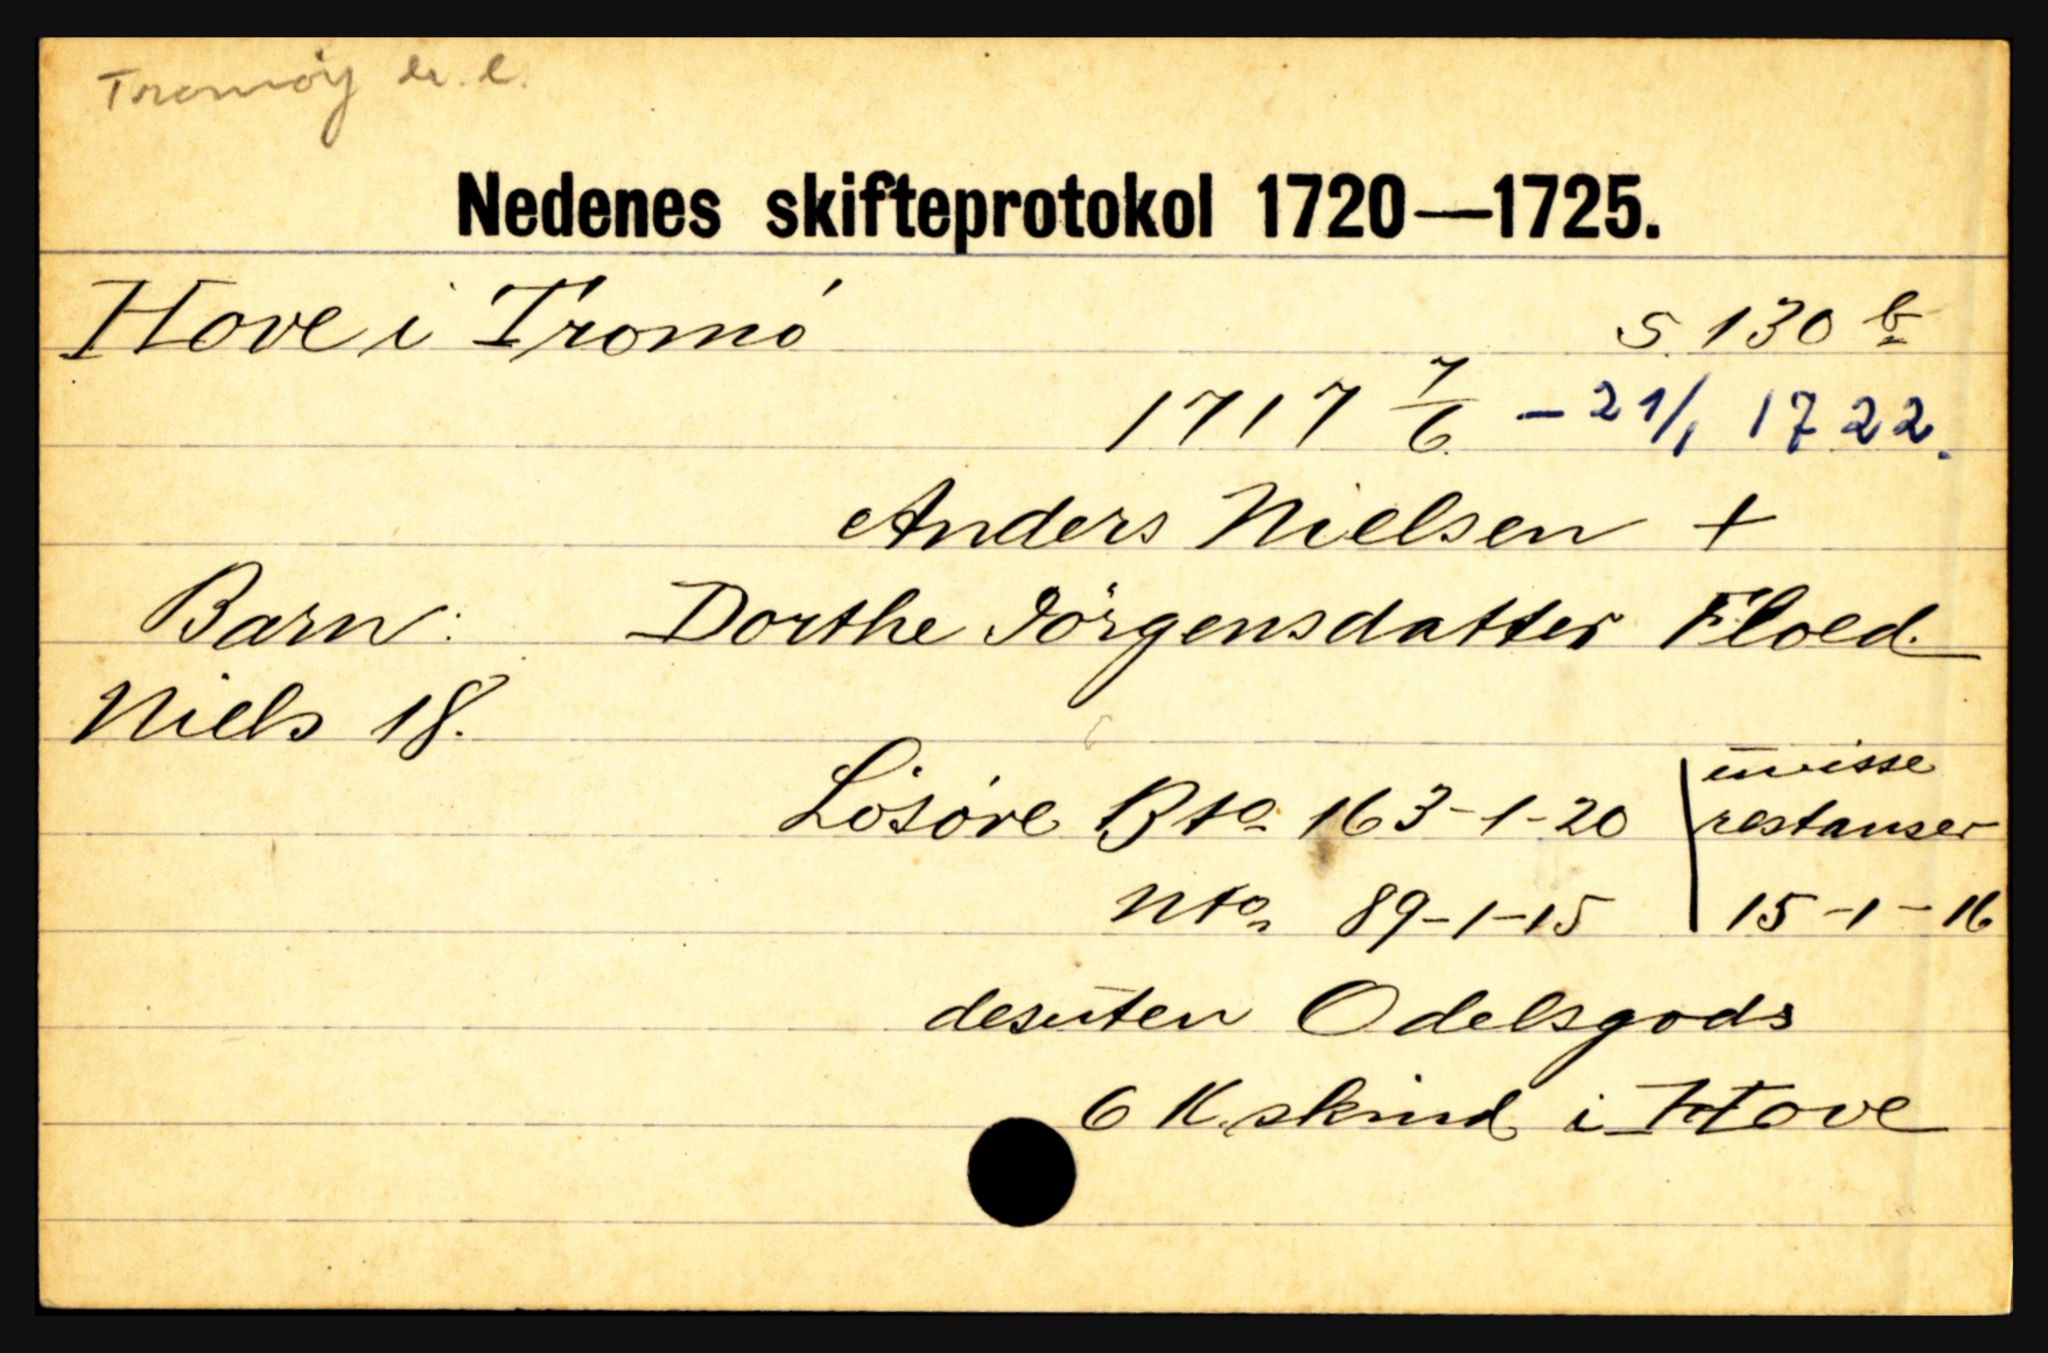 Tromøy h. l.
Nedenes skifteprotokol 1720—1725.
Hove i Tromö
S. 130 b
1717 7/6 - 21/1 1722.
Anders Nielsen +
Barn: Dorthe Jörgensdatter Floed
Niels 18.
Lösöre Bto 163-1-20
uvisse
restanser
Nto 89-1-15 15-1-16
desuten Odelsgods
6 K.skind i Hove